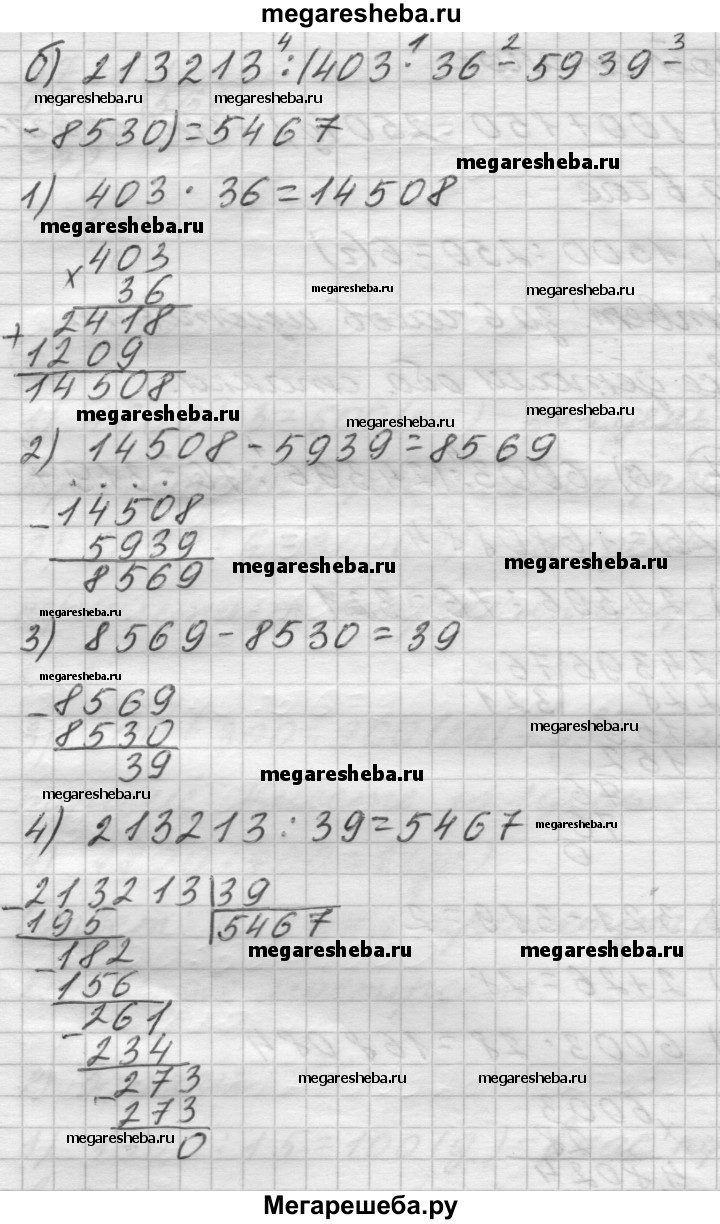 megaresheba.ru
б) 213213 :⁴ (403 ·¹ 36 -² 5939 -³
megaresheba.ru megaresheba.ru
- 8530) = 5467
megaresheba.ru
1) 403 · 36 = 14508
megaresheba.ru
× 403
36
megaresheba.ru megaresheba.ru
2418
+ 1209
14508
megaresheba.ru megaresheba.ru megaresheba.ru
2) 14508 - 5939 = 8569
- 14508
5939
8569
megaresheba.ru megaresheba.ru
megaresheba.ru
3) 8569 - 8530 = 39
megaresheba.ru
- 8569
8530
megaresheba.ru
39
megaresheba.ru
megaresheba.ru
4) 213213 : 39 = 5467
megaresheba.ru
- 213213 | 39
195 | 5467
megaresheba.ru megaresheba.ru
- 182
156
261
- 234
273
megaresheba.ru megaresheba.ru
- 273
0
megaresheba.ru
Мегарешеба.ру